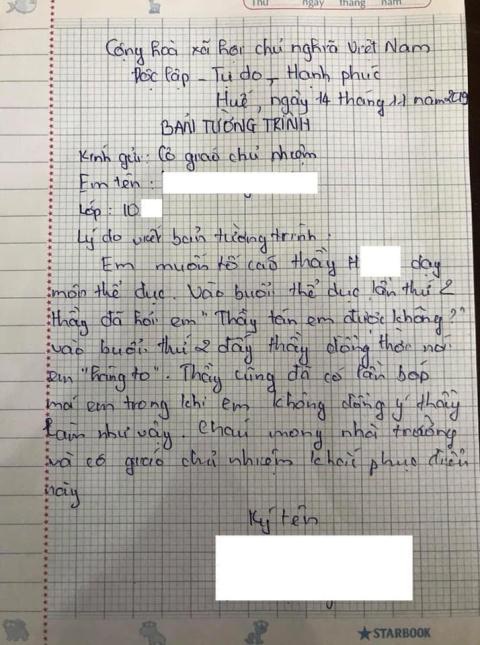 Thứ ngày tháng năm
Cộng hoà xã hội chủ nghĩa Việt Nam
Độc lập - Tự do - Hạnh phúc
Huế, ngày 14 tháng 11 năm 2019
BẢN TƯỜNG TRÌNH
Kính gửi: Cô giáo chủ nhiệm
Em tên :
Lớp : 10
Lý do viết bản tường trình :
Em muốn tố cáo thầy H dạy
môn thể dục. Vào buổi thể dục lần thứ 2
thầy đã hỏi em "Thầy tán em được không?"
vào buổi thứ 2 đấy thầy đồng thời nói
em "háng to". Thầy cũng đã có lần bóp
má em trong khi em không đồng ý thầy
làm như vậy. Cháu mong nhà trường
và cô giáo chủ nhiệm khắc phục điều
này
Ký tên
STARBOOK